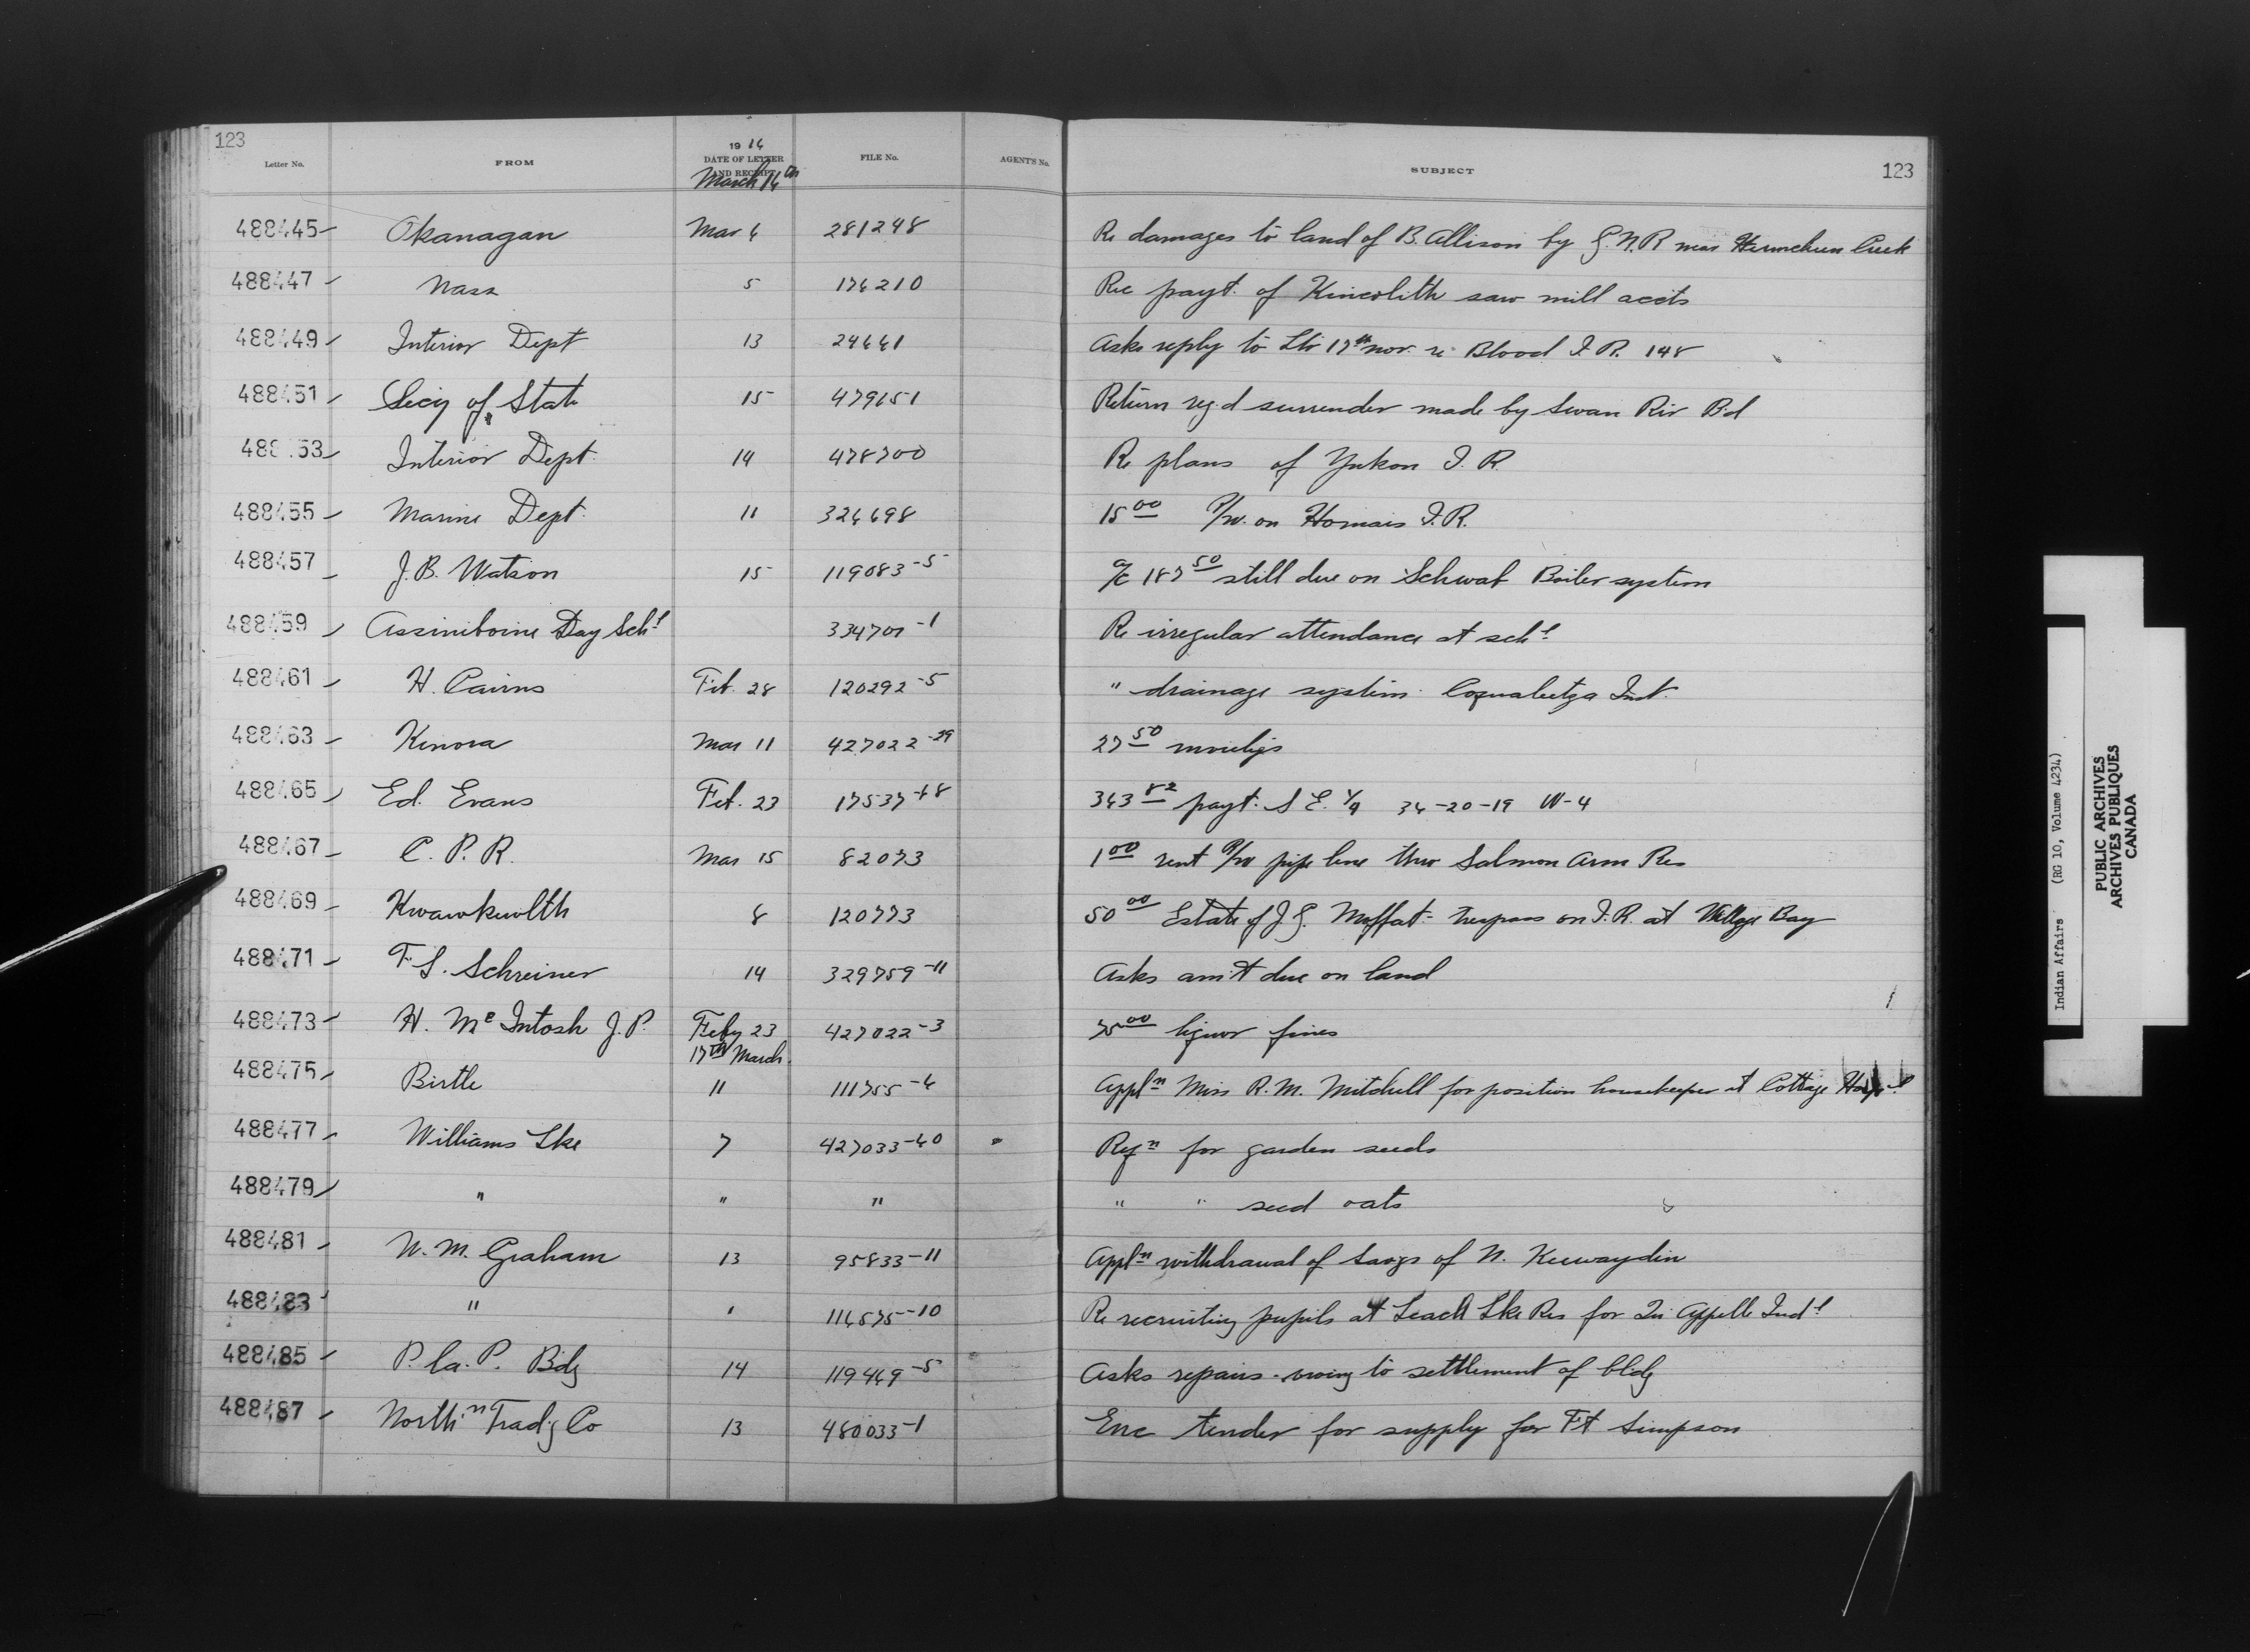 123
Letter No. FROM 1916 DATE OF LETTER AND RECEIPT FILE No. AGENT'S No. SUBJECT 123
March 16th
488445 Okanagan Mar 6 281248 Re damages to land of B. Allison by G.N.R near Creek
488447 Nass 5 176210 Rec payt. of Kincolith saw mill accts
488449 Interior Dept 13 24661 Asks reply to Ltr 17th Nov. re Blood I.R. 148
488451 Secy of State 15 479651 Return reg'd surrender made by Swan Riv Bd
488453 Interior Dept. 14 478700 Re plans of Yukon I.R.
488455 Marine Dept. 11 326698 15 00 R/W. on Homais I.R.
488457 J.B. Watson 15 119083-5 a/c 187 50 still due on Schwab Boiler system
488459 Assiniboine Day Schl 334701-1 Re irregular attendance at schl
488461 H. Cairns Feb. 28 120292-5 " drainage system Coqualeetza Inst.
488463 Kenora Mar 11 427022-29 27 50
488465 Ed. Evans Feb. 23 17537-68 363 82 payt. S E. 1/4 36-20-19 W-4
488467 C.P.R. Mar 15 82073 1 00 rent R/W pipe line thro Salmon Arm Res
488469 Kwawkewlth 8 120773 50 00 Estate of J.G. Moffat - trespass on I.R. at Village Bay
488471 F.S. Schreiner 14 329759-11 Asks am't due on land
488473 H. McIntosh J.P. Feby 23 427022-3 75 00 liquor fines
17th March.
488475 Birtle 11 111755-6 Appln Miss R.M. Mitchell for position housekeeper at Cottage Hospl
488477 Williams Lke 7 427033-60 Reqn for garden seeds
488479 " " " " " seed oats
488481 W.M. Graham 13 95833-11 Appln withdrawal of Savgs of N. Keewaydin
488483 " " 116575-10 Re recruiting pupils at Leach Lke Res for Qu'Appelle Indl
488485 P. la. P. Bdg 14 119469-5 Asks repairs owing to settlement of bldg
488487 Northn Trad'g Co 13 480033-1 Enc tender for supply for Ft Simpson
Indian Affairs (RG 10, Volume 4234)
PUBLIC ARCHIVES
ARCHIVES PUBLIQUES
CANADA